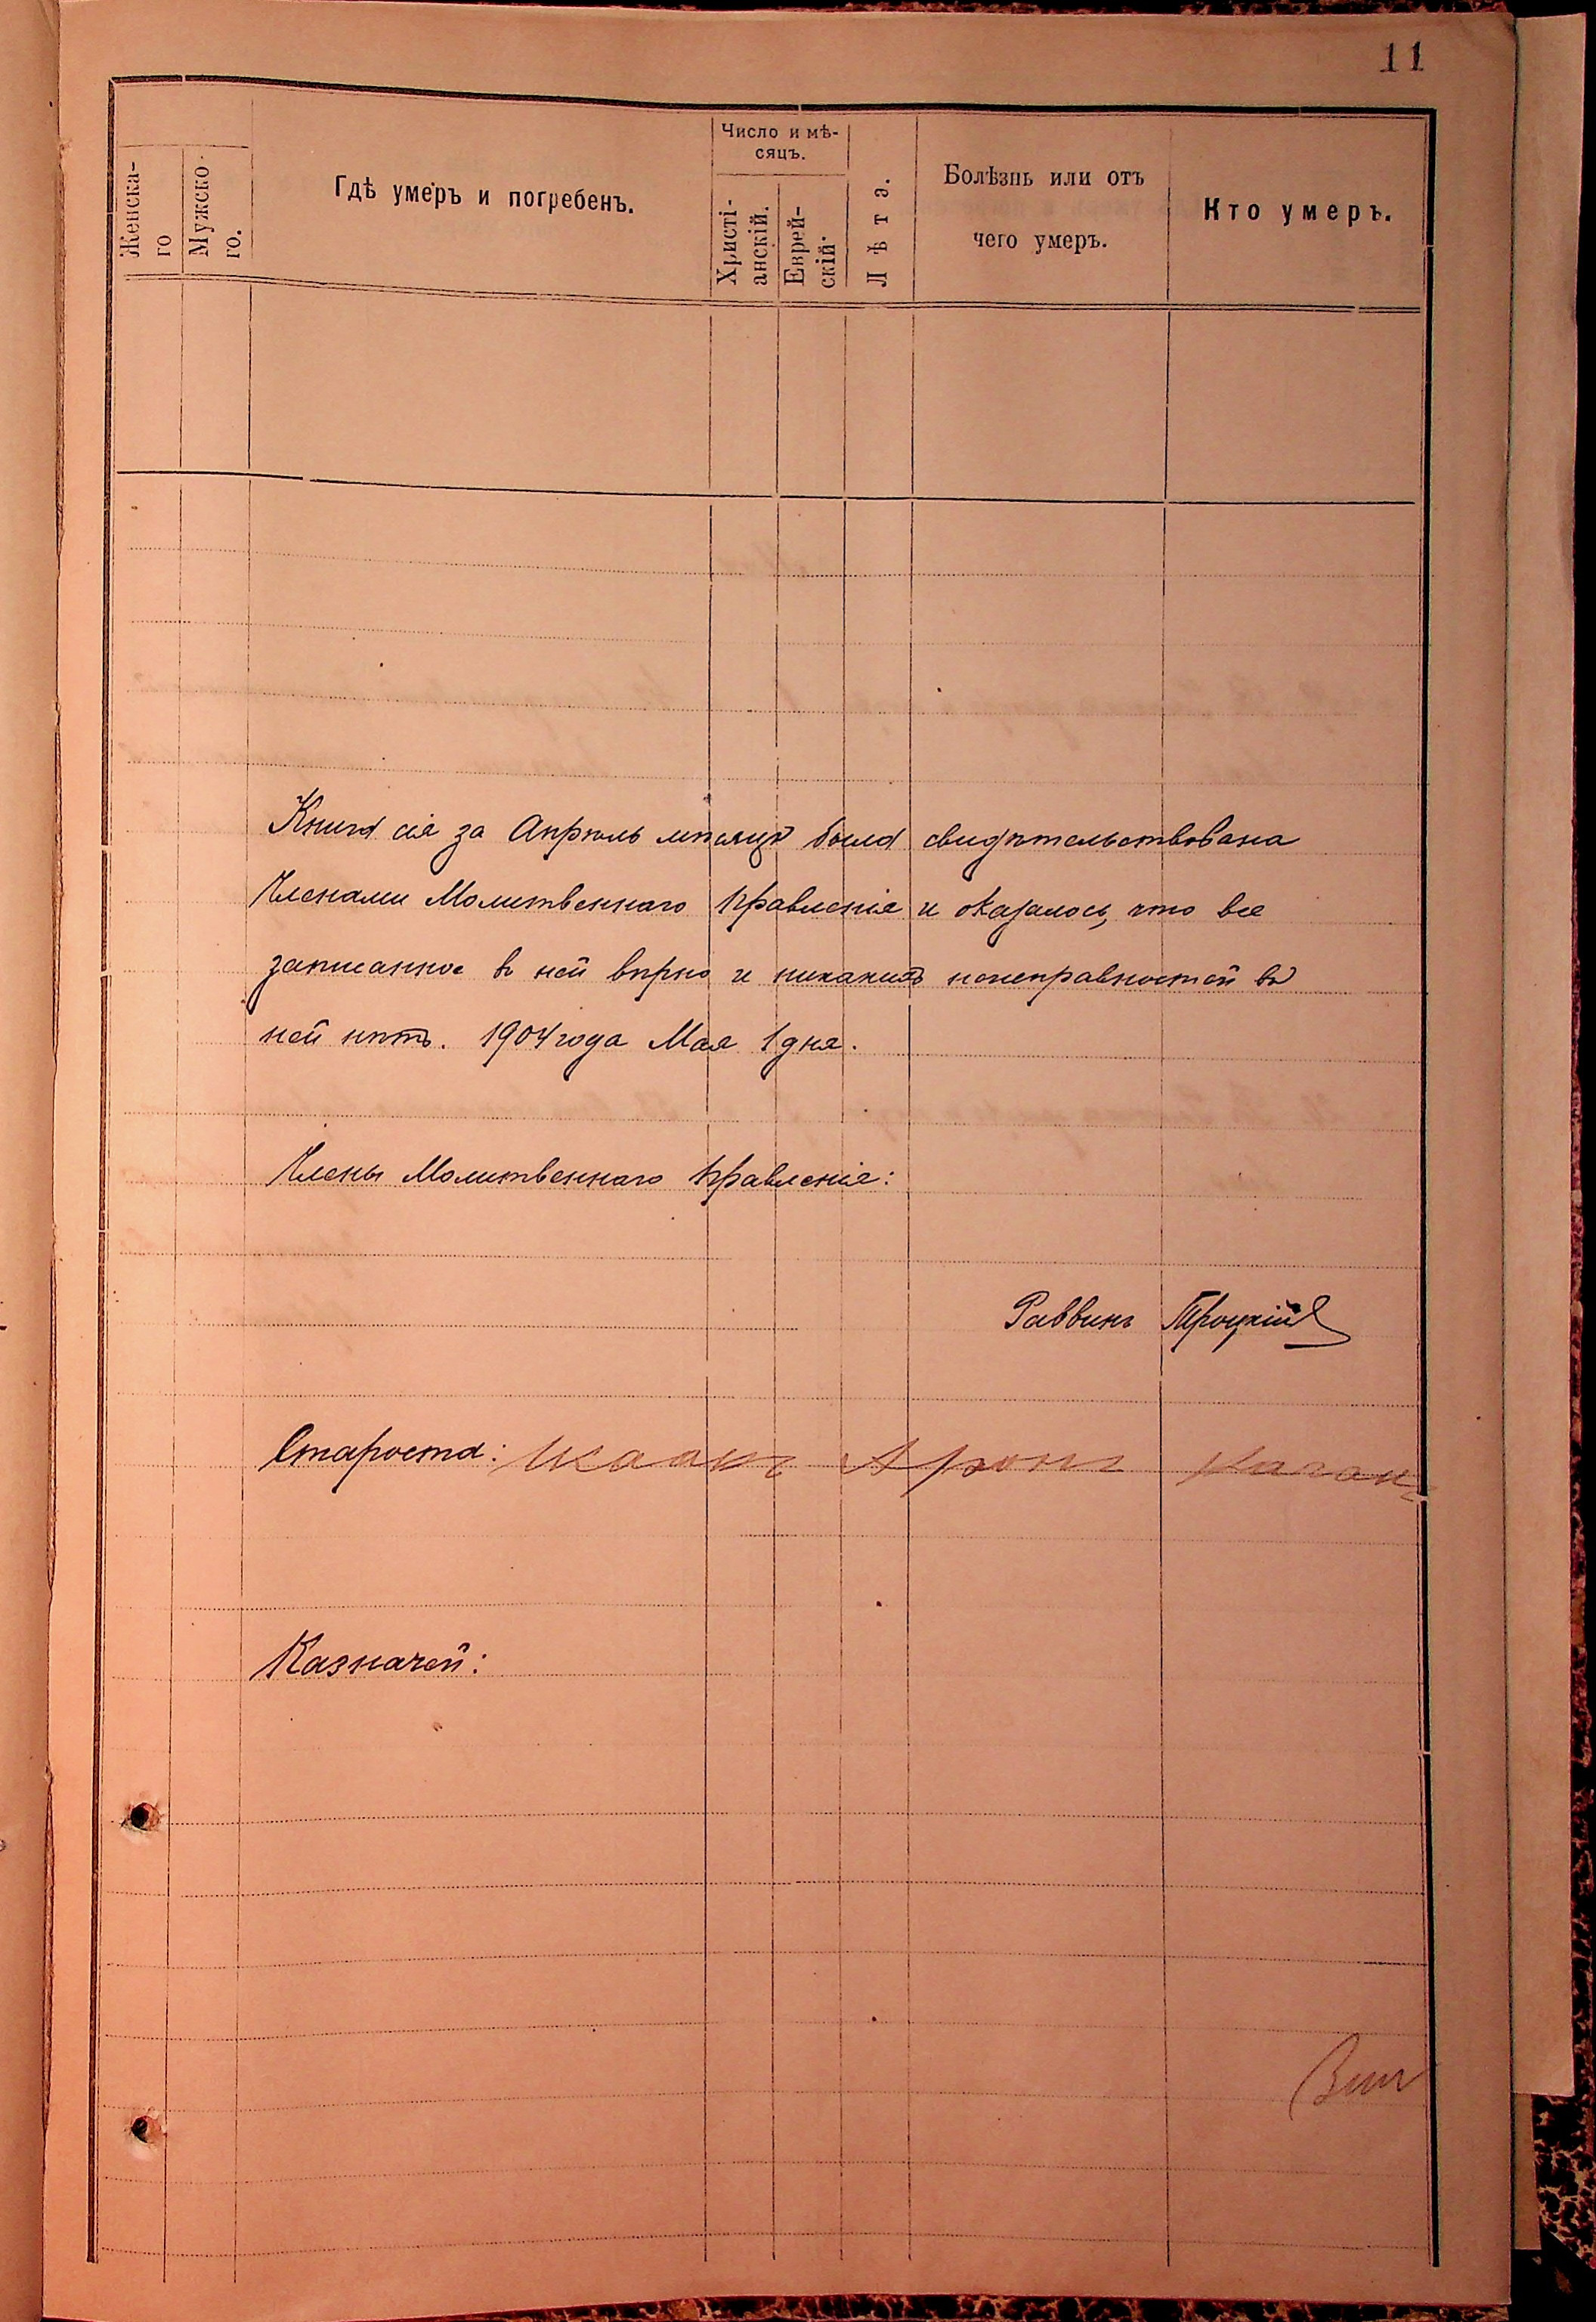 11
Женска-
го
Мужско-
го.
Гдѣ умеръ и погребенъ.
Число и мѣ-
сяцъ.
Христі-
анскій.
Еврей-
скій.
Лѣта.
Болѣзнь или отъ
чего умеръ.
Кто умеръ.
Книга сія за Апрѣль мѣсяцъ была свидѣтельствована
Членами Молитвеннаго Правленія и оказалось, что все
записанное въ ней вѣрно и никакихъ неисправностей въ
ней нѣтъ. 1904 года Мая 1 дня.
Члены Молитвеннаго Правленія:
Раввинъ Троцкій
Староста: Аронъ Каганъ
Казначей: